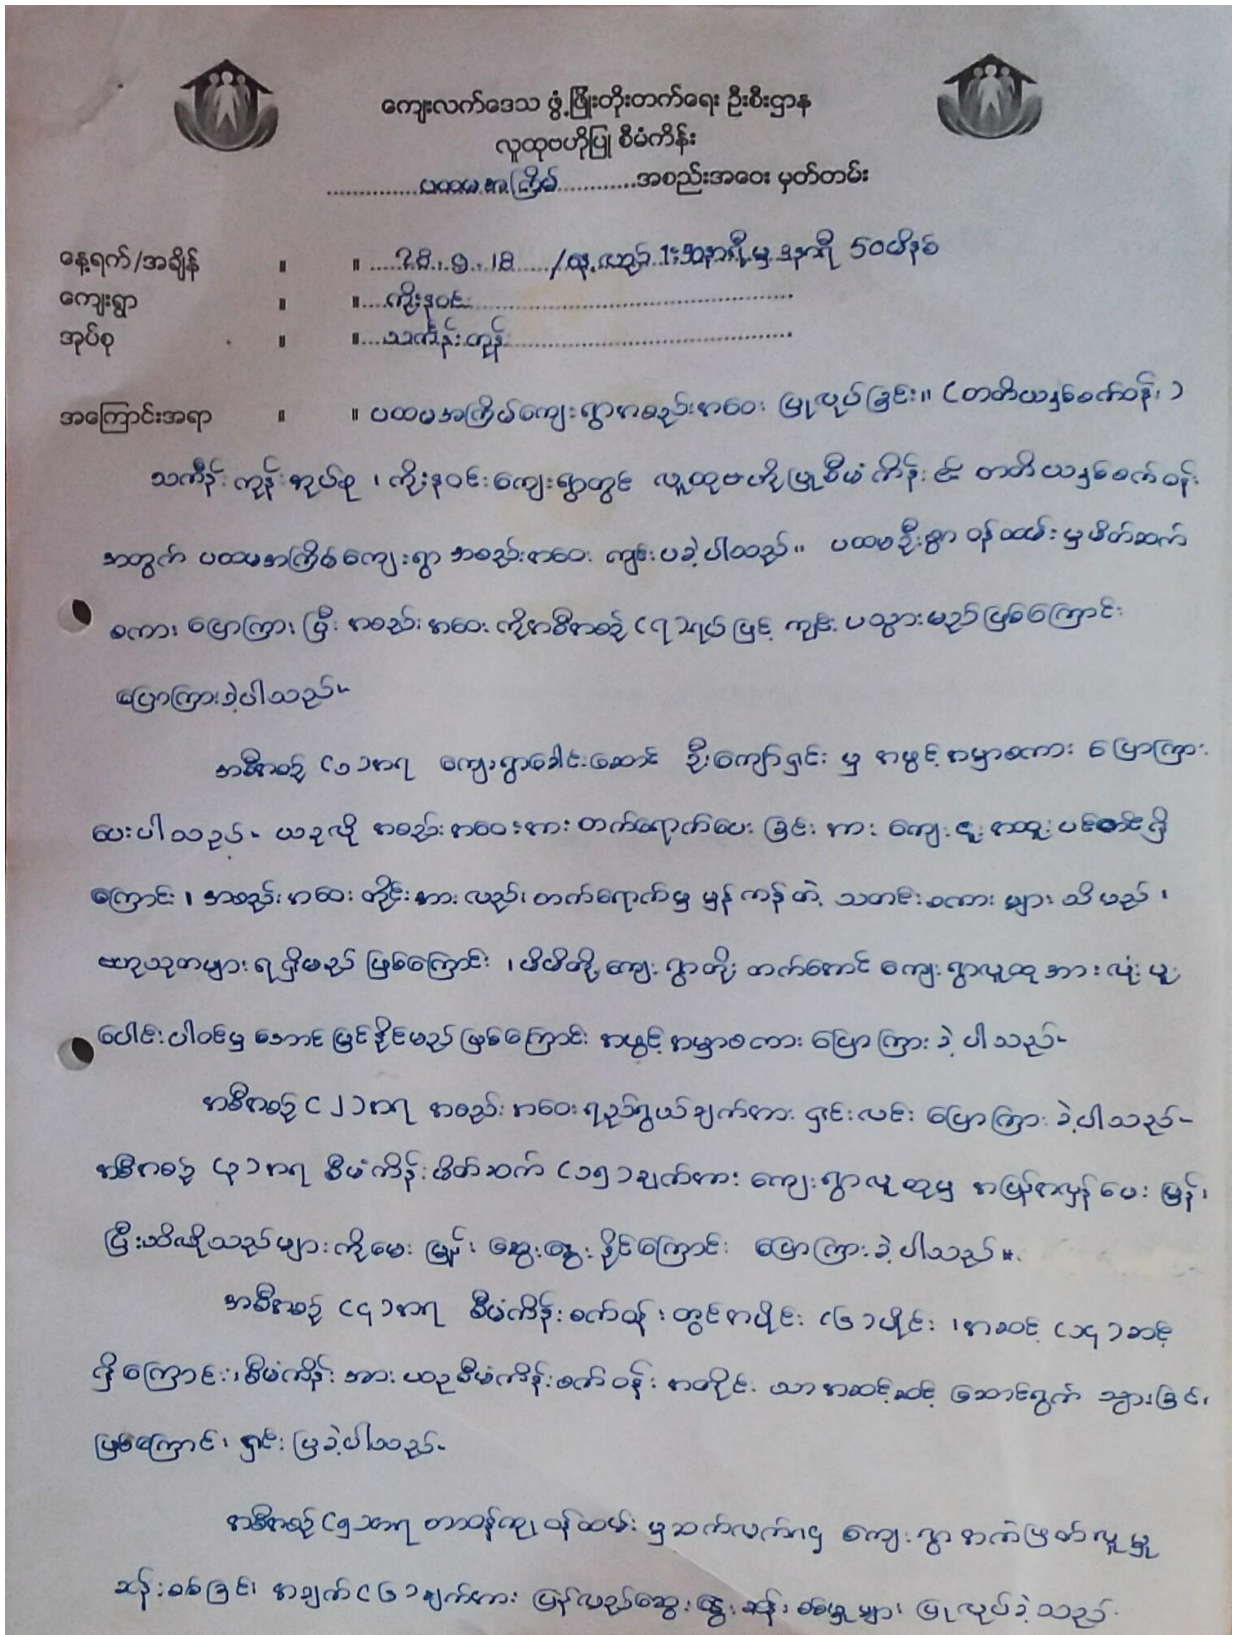 ကျေးလက်ဒေသ ဖွံ့ဖြိုးတိုးတက်ရေး ဦးစီးဌာန
လူထုဗဟိုပြု စီမံကိန်း
..............ပထမအကြိမ်............အစည်းအဝေး မှတ်တမ်း
နေ့ရက်/အချိန် ။ ။ ....28.9.18 /နေ့လည် 1:30နာရီမှ 3နာရီ 50မိနစ်
ကျေးရွာ ။ ။....ကိုးနဝင်း......................
အုပ်စု ။ ။....သင်္ကန်းကုန်း......................
အကြောင်းအရာ ။ ။ ပထမအကြိမ်ကျေးရွာအစည်းအဝေး ပြုလုပ်ခြင်း။ (တတိယနှစ်စက်ဝန်း)
သင်္ကန်းကုန်းအုပ်စု ၊ ကိုးနဝင်းကျေးရွာတွင် လူထုဗဟိုပြုစီမံကိန်း၏ တတိယနှစ်စက်ဝန်း
အတွက် ပထမအကြိမ်ကျေးရွာ အစည်းအဝေး ကျင်းပခဲ့ပါသည်။ ပထမဦးစွာ ဝန်ထမ်းမှမိတ်ဆက်
စကား ပြောကြားပြီး အစည်းအဝေးကိုအစီအစဉ် (၇)ရပ်ဖြင့် ကျင်းပသွားမည်ဖြစ်ကြောင်း
ပြောကြားခဲ့ပါသည်။
အစီအစဉ် (၁)အရ ကျေးရွာခေါင်းဆောင် ဦးကျော်ရှင်း မှ အဖွင့်အမှာစကား ပြောကြား
ပေးပါသည်။ ယခုလို အစည်းအဝေးအား တက်ရောက်ပေးခြင်းအား ကျေးဇူးအထူးပင်တင်ရှိ
ကြောင်း၊ အစည်းအဝေးတိုင်းအားလည်း တက်ရောက်မှ မှန်ကန်တဲ့ သတင်းစကားများ သိမည် ၊
ဗဟုသုတများရရှိမည် ဖြစ်ကြောင်း ၊ မိမိတို့ကျေးရွာတိုးတက်အောင် ကျေးရွာလူထုအားလုံး ပူး
ပေါင်းပါဝင်မှ အောင်မြင်နိုင်မည်ဖြစ်ကြောင်း အဖွင့်အမှာစကား ပြောကြားခဲ့ပါသည်။
အစီအစဉ် (၂)အရ အစည်းအဝေးရည်ရွယ်ချက်အား ရှင်းလင်း ပြောကြားခဲ့ပါသည်။
အစီအစဉ် (၃)အရ စီမံကိန်းမိတ်ဆက် (၁၅)ချက်အား ကျေးရွာလူထုမှ အပြန်အလှန်မေးမြန်း
ပြီးသိလိုသည်များကိုမေးမြန်း ဆွေးနွေးနိုင်ကြောင်း ပြောကြားခဲ့ပါသည်။
အစီအစဉ် (၄)အရ စီမံကိန်းစက်ဝန်းတွင်အပိုင်း (၆)ပိုင်း ၊အဆင့် (၁၄)ဆင့်
ရှိကြောင်း၊စီမံကိန်းအား ယခုစီမံကိန်းစက်ဝန်းအတိုင်း သာအဆင့်ဆင့် ဆောင်ရွက် သွားခြင်း
ဖြစ်ကြောင်း ရှင်းပြခဲ့ပါသည်။
အစီအစဉ် (၅)အရ တာဝန်ကျဝန်ထမ်း မှဆက်လက်၍ ကျေးရွာအကဲဖြတ်လူမှု
ဆန်းစစ်ခြင်း အချက် (၆)ချက်အား ပြန်လည်ဆွေးနွေးဆန်းစစ်မှုများ ပြုလုပ်ခဲ့သည်။